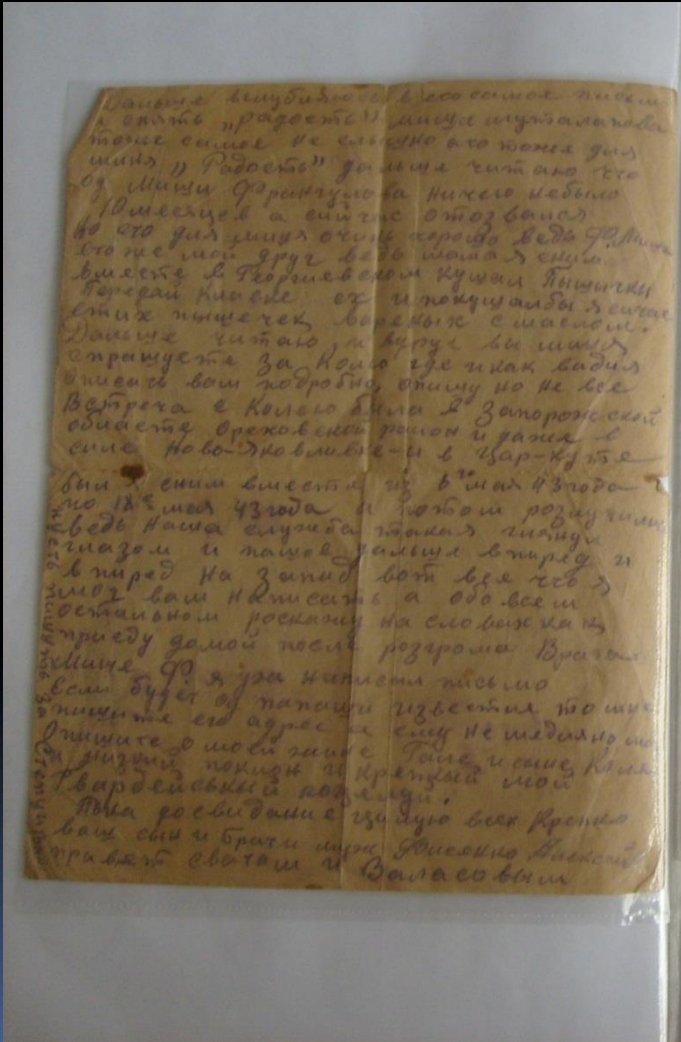 Дальше вглубляюсь в сосамое письм
и опять „радость" миша шуталапова
тоже самое не слышно ето тоже для
миня „Радость" дальше читаю что
од Миши Франгулова ничего небыло
10 месяцев а сийчас отозвался
но ето для миня очинь хорошо ведь Фр. Миша
етоже мой друг ведь мама я сним
вместе в Георгиевском кушал Пышычки
Передай Клавке ех и покушалбы я сичас
етих пышечек вареных с маслом.
Дальше читаю и вдруг вы миня
спрашуете за Колю где и как видил
описать вам подробно, опишу но не все
Встреча с Колею была в Запорожской
области Ореховский район и даже в
силе Ново-Яковливке и в Цар-Куте
был я сним вместе из 6го мая 43 года
по 18е мая 43 года а потом розлучились
ведь наша служба такая гианул
глазом и пашол дальше вперед и
впиред на Запад вот все что я
мог вам написать а обовсем
остальном роскажу на словах как
приеду домой после розгрома Врага.
Мише Ф. я уже написал письмо
если будет од папаши известия то мине
пишите его адрес и ему не медляно мой
Опишите о моей жине Гале и сыне Коля
и низкий поклон и крепкий мой
Гвардейський поцелуй.
Пока досвидание Цилую всех крепко
ваш сын и брат и муж Фисенко Алексей
привет сватам и Валасовым
пусть пишуть за